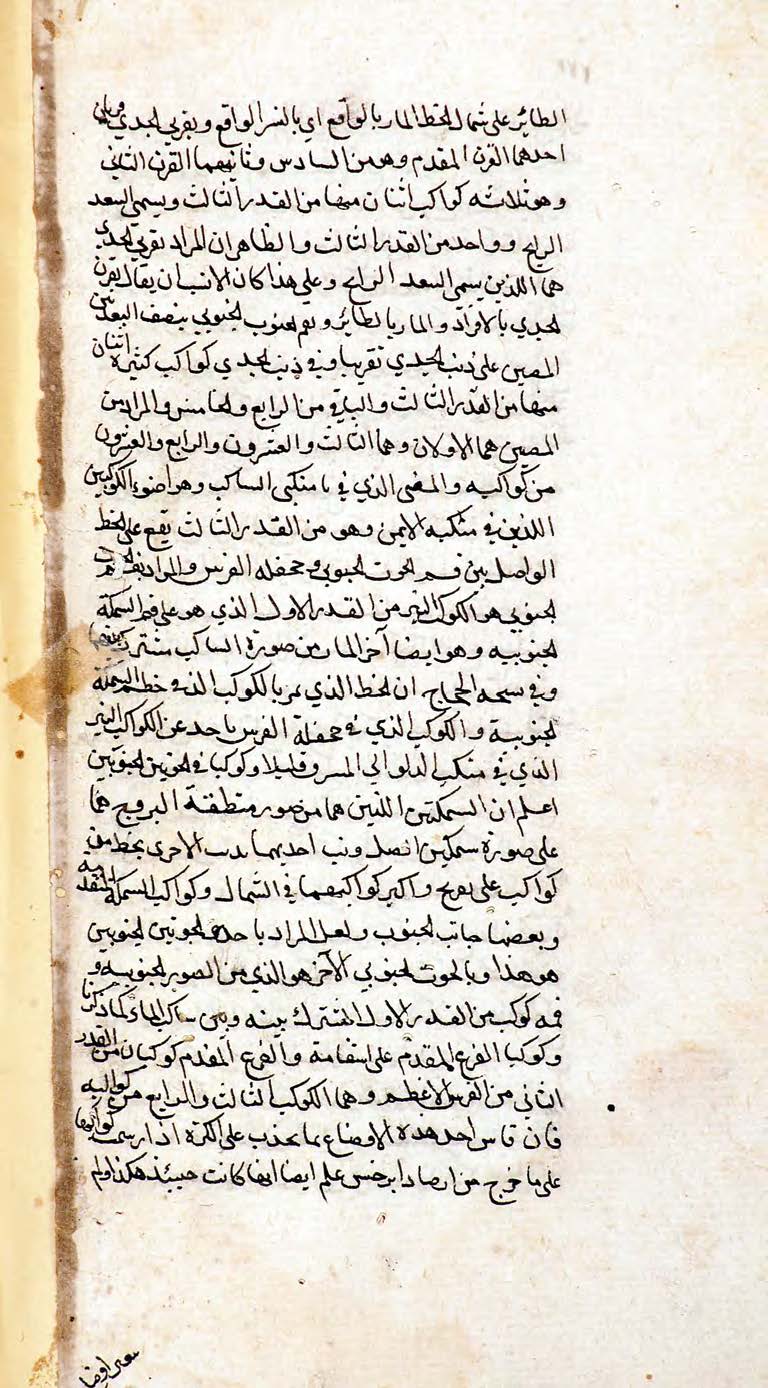 الطائر على شمال الخط المار بالواقع اي بالنسر الواقع وبقربي الجدي قرنان
احدهما القرن المقدم وهو من السادس وثانيهما القرن الثاني
وهو ثلاثه كواكب اثنان منها من القدر الثالث ويسمى السعد
الرابح وواحد من القدر الثالث والظاهر ان المراد بقرني الجدي
هما اللذين يسمى السعد الرابح وعلى هذا كان الانسب ان يقال بقرن
الجدي بالافراد والمار بالطائر وبفم الجنوب الجنوبي ينصف البعد بين
المضيين على ذنب الجدي تقريبا وفي ذنب الجدي كواكب كثيرة اثنان
منها من القدر الثالث والباقي من الرابع والخامس والمراد من
المضيين هما الاولان وهما الثالث والعشرون والرابع والعشرون
من كواكبه والمضي الذي في منكبي الساكب وهو اضوء الكوكبين
اللذين في منكبه الايمن وهو من القدر الثالث يقع على الخط
الواصل بين فم الحوت الجنوبي وجحفله الفرس والمراد بفم
الجنوبي هو الكوكب النير من القدر الاول الذي هو على فم السمكة
الجنوبيه وهو ايضا آخر الماء من صورة الساكب مشترك بينهما
وفي نسخه الحجاج ان الخط الذي يمر بالكوكب الذي في خطم السمكة
الجنوبية والكوكب الذي في جحفلة الفرس ياخذ عن الكوكب النير
الذي في منكب الدلو الى المشرق قليلا وكوكبا في الحوتين الجنوبيين
اعلم ان السمكتين اللتين هما من صور منطقة البروج هما
على صورة سمكتين اتصل ذنب احديهما بذنب الاخرى بخط من
كواكب على تعريج واكبر كواكبهما في الشمال وكواكب السمكة المتقدمه
وبعضها جانب الجنوب ولعل المراد باحد الحوتين الجنوبيين
هو هذا وبالحوت الجنوبي الآخر هو الذي من الصور الجنوبيه و
فمه كوكب من القدر الاول المشترك بينه وبين ساكب الماء كما ذكرنا
وكوكبا الفرع المقدم على استقامة والفرع المقدم كوكبان من القدر
الثاني من الفرس الاعظم وهما الكوكب الثالث والرابع من كواكبه
فان قاس احد هذه الاوضاع بما يحدث على الكرة اذا رسمت كواكبها
على ما خرج من ارصاد ابرخس علم ايضا انها كانت حينئذ هكذا ولم